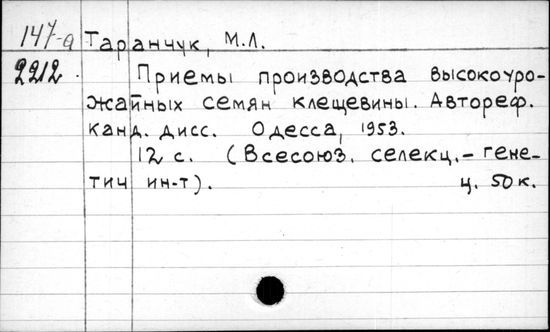 147-а Таранчук, М.Л.
2212. Приемы производства высокоуро-
жайных семян клещевины. Автореф.
канд. дисс. Одесса, 1953.
12 с. (Всесоюз. селекц.-гене-
тич ин-т). ц. 50 к.